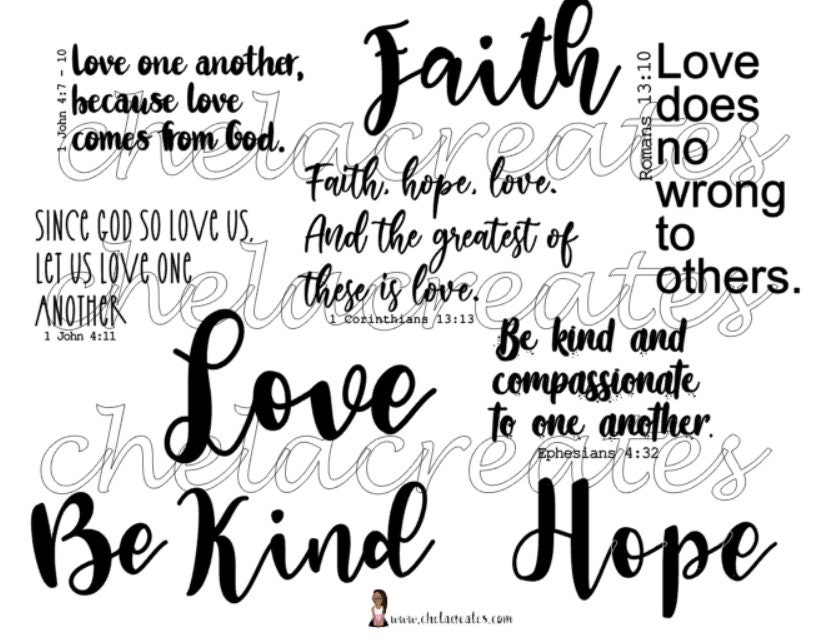 1 John 4:7 - 10
love one another,
because love
comes from God.
Faith
Romans 13:10
Love
does
no
wrong
to
others.
chelacreates
Faith, hope, love.
And the greatest of
these is love.
1 Corinthians 13:13
SINCE GOD SO LOVE US,
LET US LOVE ONE
ANOTHER
1 John 4:11
chelacreates
Love
Be kind and
compassionate
to one another.
Ephesians 4:32
chelacreates
Be Kind
Hope
www.chelacreates.com